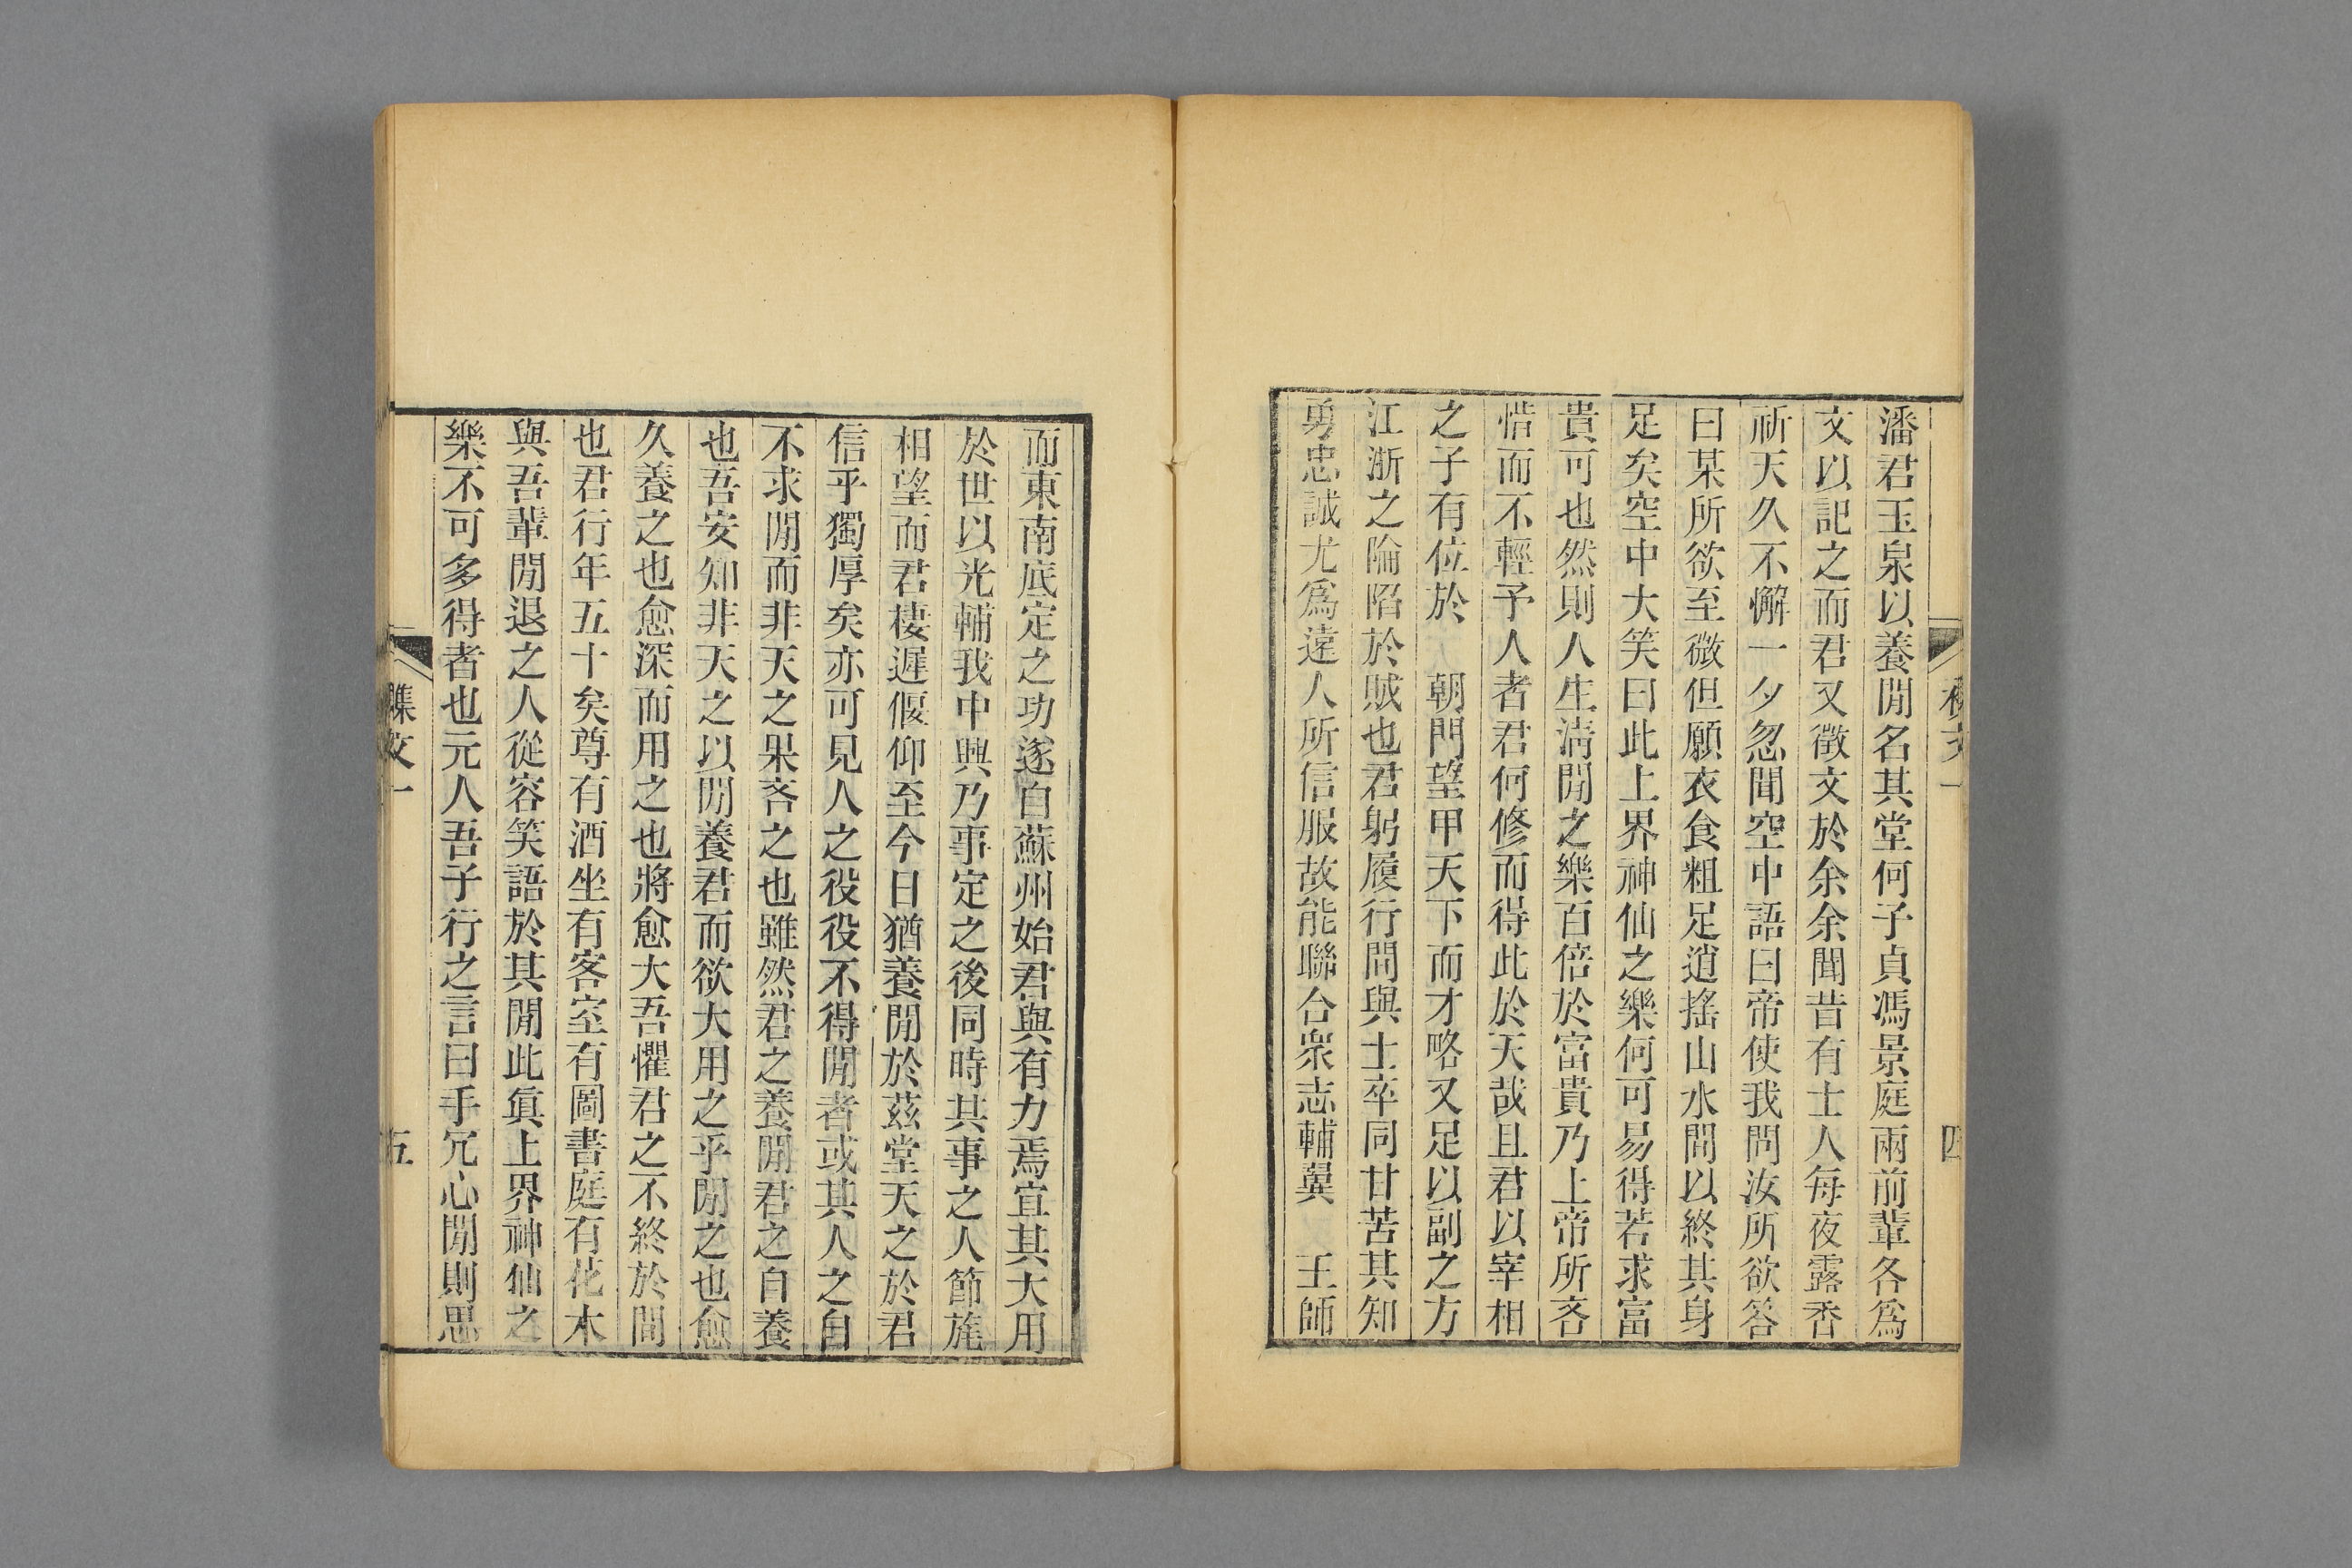 潘君玉泉以養閒名其堂何子貞馮景庭兩前輩各爲
文以記之而君又徵文於余余聞昔有士人每夜露香
祈天久不懈一夕忽聞空中語曰帝使我問汝所欲答
曰某所欲至微但願衣食粗足逍搖山水間以終其身
足矣空中大笑曰此上界神仙之樂何可易得若求富
貴可也然則人生淸閒之樂百倍於富貴乃上帝所吝
惜而不輕予人者君何修而得此於天哉且君以宰相
之子有位於 朝門望甲天下而才略又足以副之方
江浙之陷於賊也君躬履行間與士卒同甘苦其知
勇忠誠尤爲遠人所信服故能聯合衆志輔翼 王師
而東南底定之功遂自蘇州始君與有力焉宜其大用
於世以光輔我中興乃事定之後同時其事之人節旄
相望而君棲遲偃仰至今日猶養閒於茲堂天之於君
信乎獨厚矣亦可見人之役役不得閒者或其人之自
不求閒而非天之果吝之也雖然君之養閒君之自養
也吾安知非天之以閒養君而欲大用之乎閒之也愈
久養之也愈深而用之也將愈大吾懼君之不終於閒
也君行年五十矣尊有酒坐有客室有圖書庭有花木
與吾輩閒退之人從容笑語於其閒此眞上界神仙之
樂不可多得者也元人吾子行之言曰手冗心閒則思
襍文一
五
四